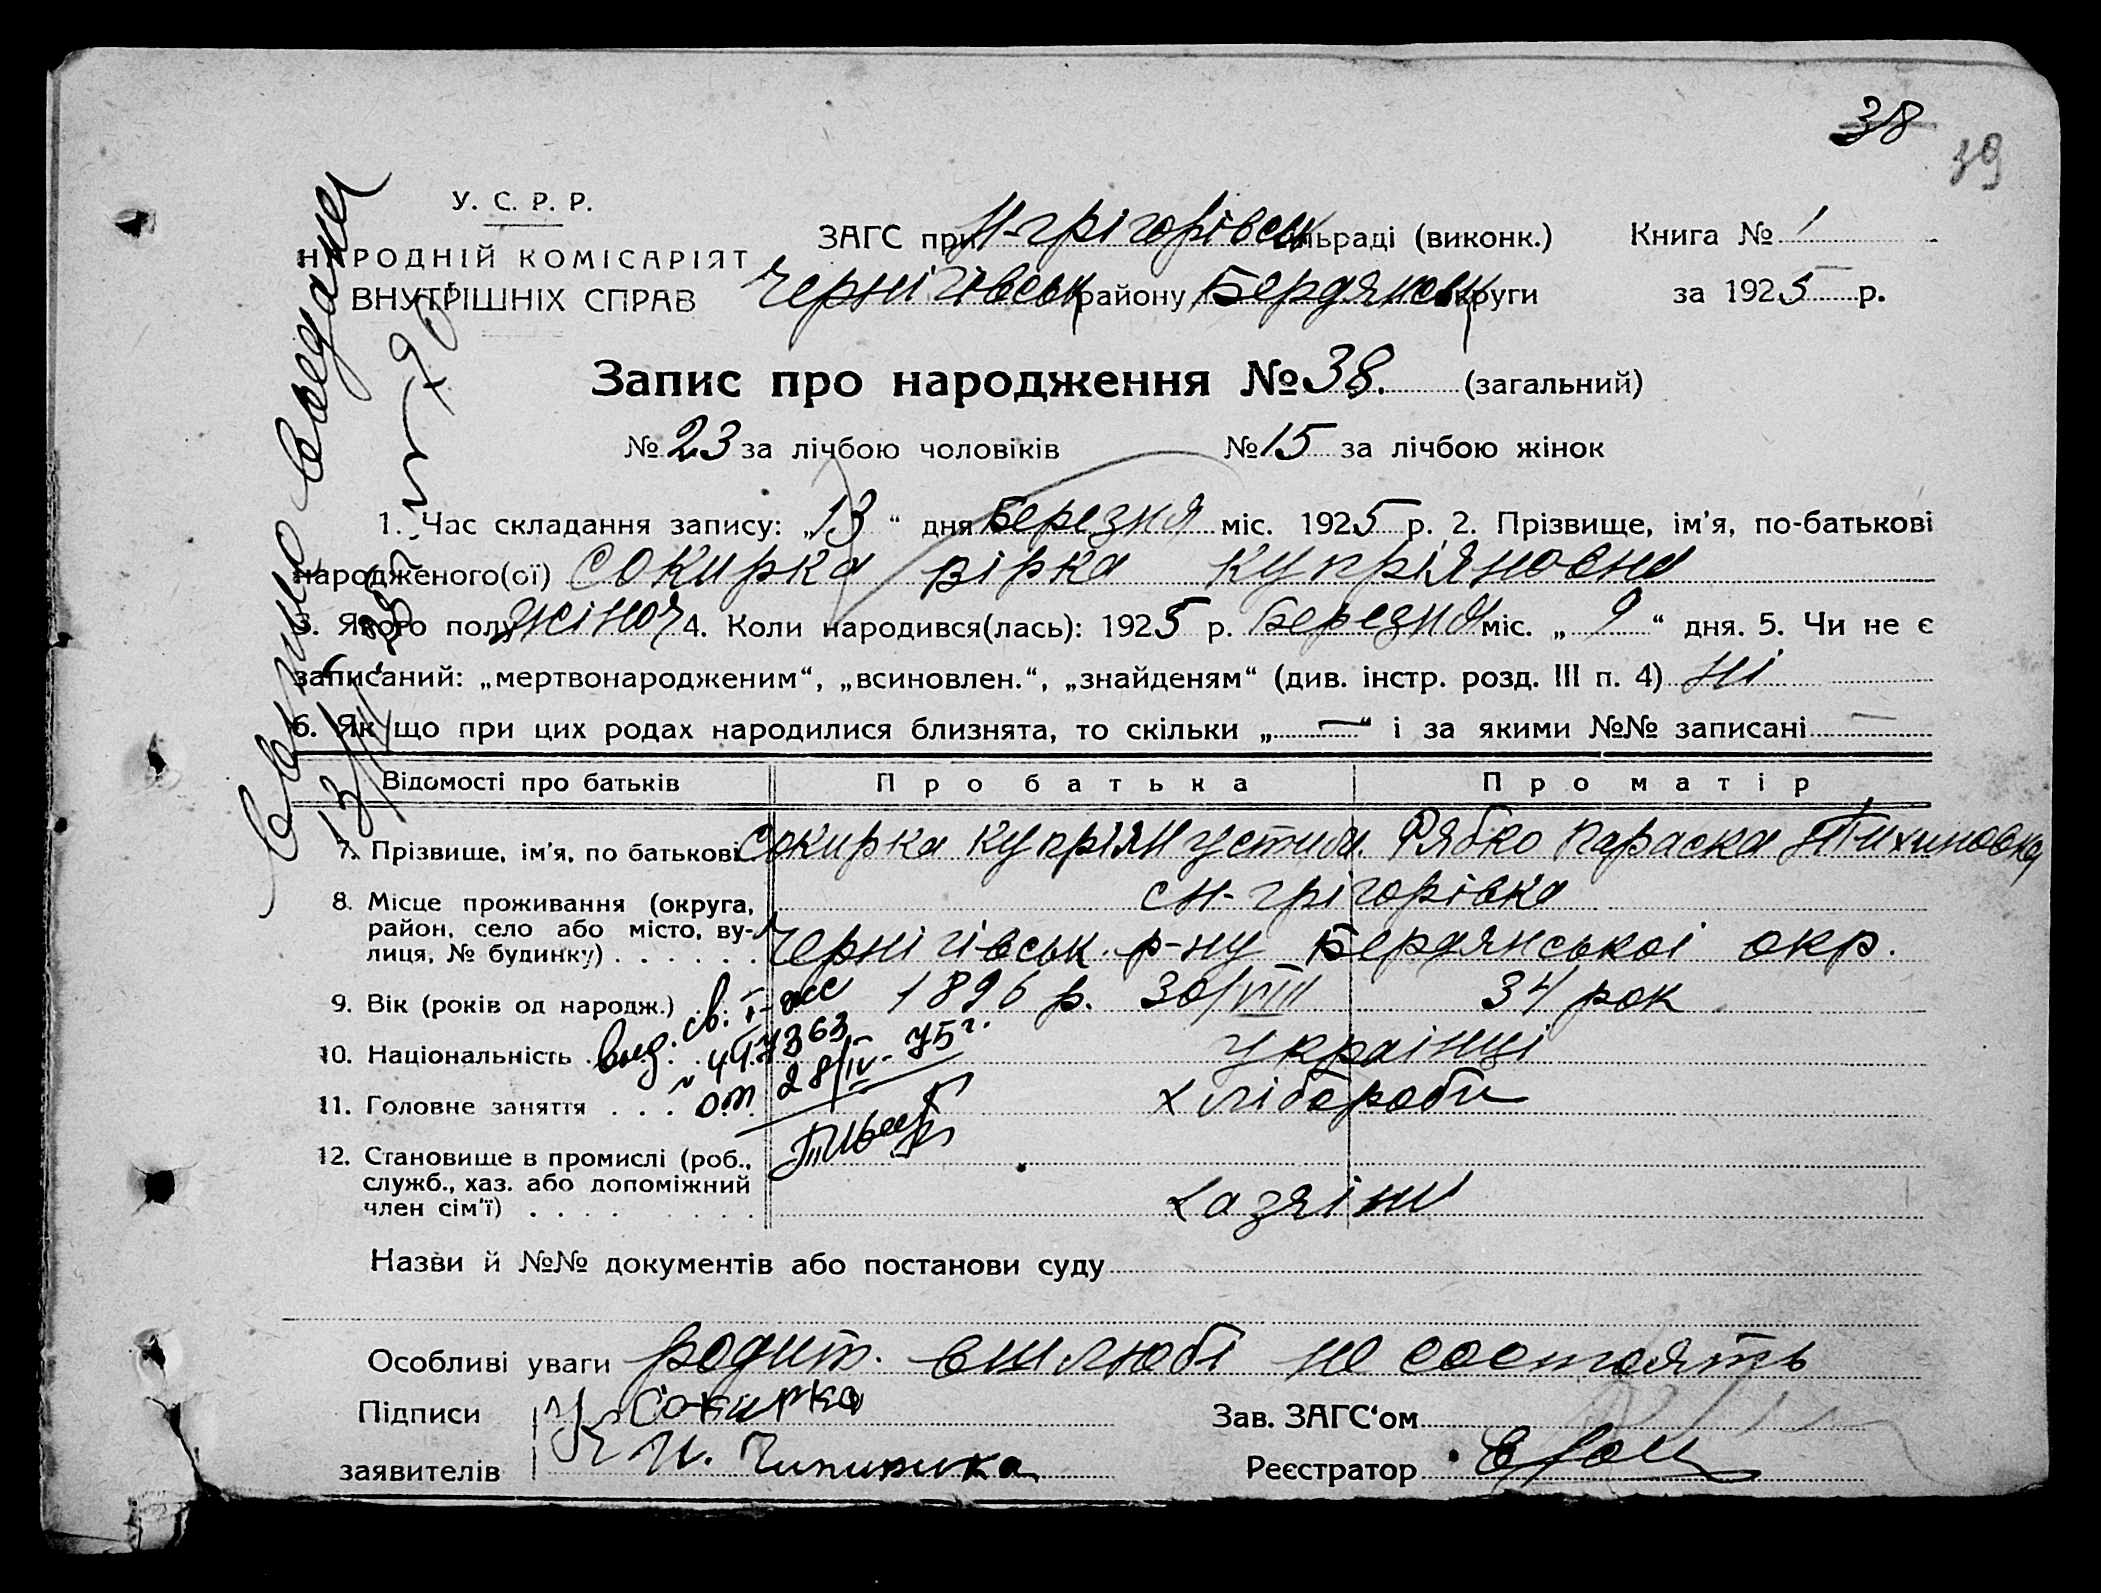 38
39
У. С. Р. Р.
НАРОДНІЙ КОМІСАРІЯТ
ВНУТРІШНІХ СПРАВ
ЗАГС при Н-Грігорівськ сільраді (виконк.) Книга № 1
Чернігівськ району Бердянськ округи за 1925 р.
Запис про народження № 38. (загальний)
№ 23 за лічбою чоловіків № 15 за лічбою жінок
1. Час складання запису: „13“ дня Березня міс. 1925 р. 2. Прізвище, ім'я, по-батькові
народженого(ої) Сокирка Вірка Купріяновна
3. Якого полу жіноч 4. Коли народився(лась): 1925 р. Березня міс. „9“ дня. 5. Чи не є
записаний: „мертвонародженим“, „всиновлен.“, „знайденям“ (див. інстр. розд. III п. 4) ні
6. Як що при цих родах народилися близнята, то скільки „—“ і за якими №№ записані —
Відомості про батьків Про батька Про матір
7. Прізвище, ім'я, по батькові Сокирка Купріян Устинов. Рябко Параска Тихиновна
8. Місце проживання (округа, с Н-Грігорівка
район, село або місто, ву-
лиця, № будинку) . . . . . . Чернігівськ. р-ну Бердянської окр.
9. Вік (років од народж.) . . . 1896 р. 30/VIII 34 рок
10. Національність . . . Українці
11. Головне заняття . . . Хлібороби
12. Становище в промислі (роб.,
служб., хаз. або допоміжний
член сім'ї) . . . . Хазяїни
выд. св. I-жс
№ 447363
от 28/IV-75г.
Назви й №№ документів або постанови суду
Особливі уваги родит. в шлюбі не состоять
Підписи Сокирка Зав. ЗАГС'ом
заявителів Реєстратор